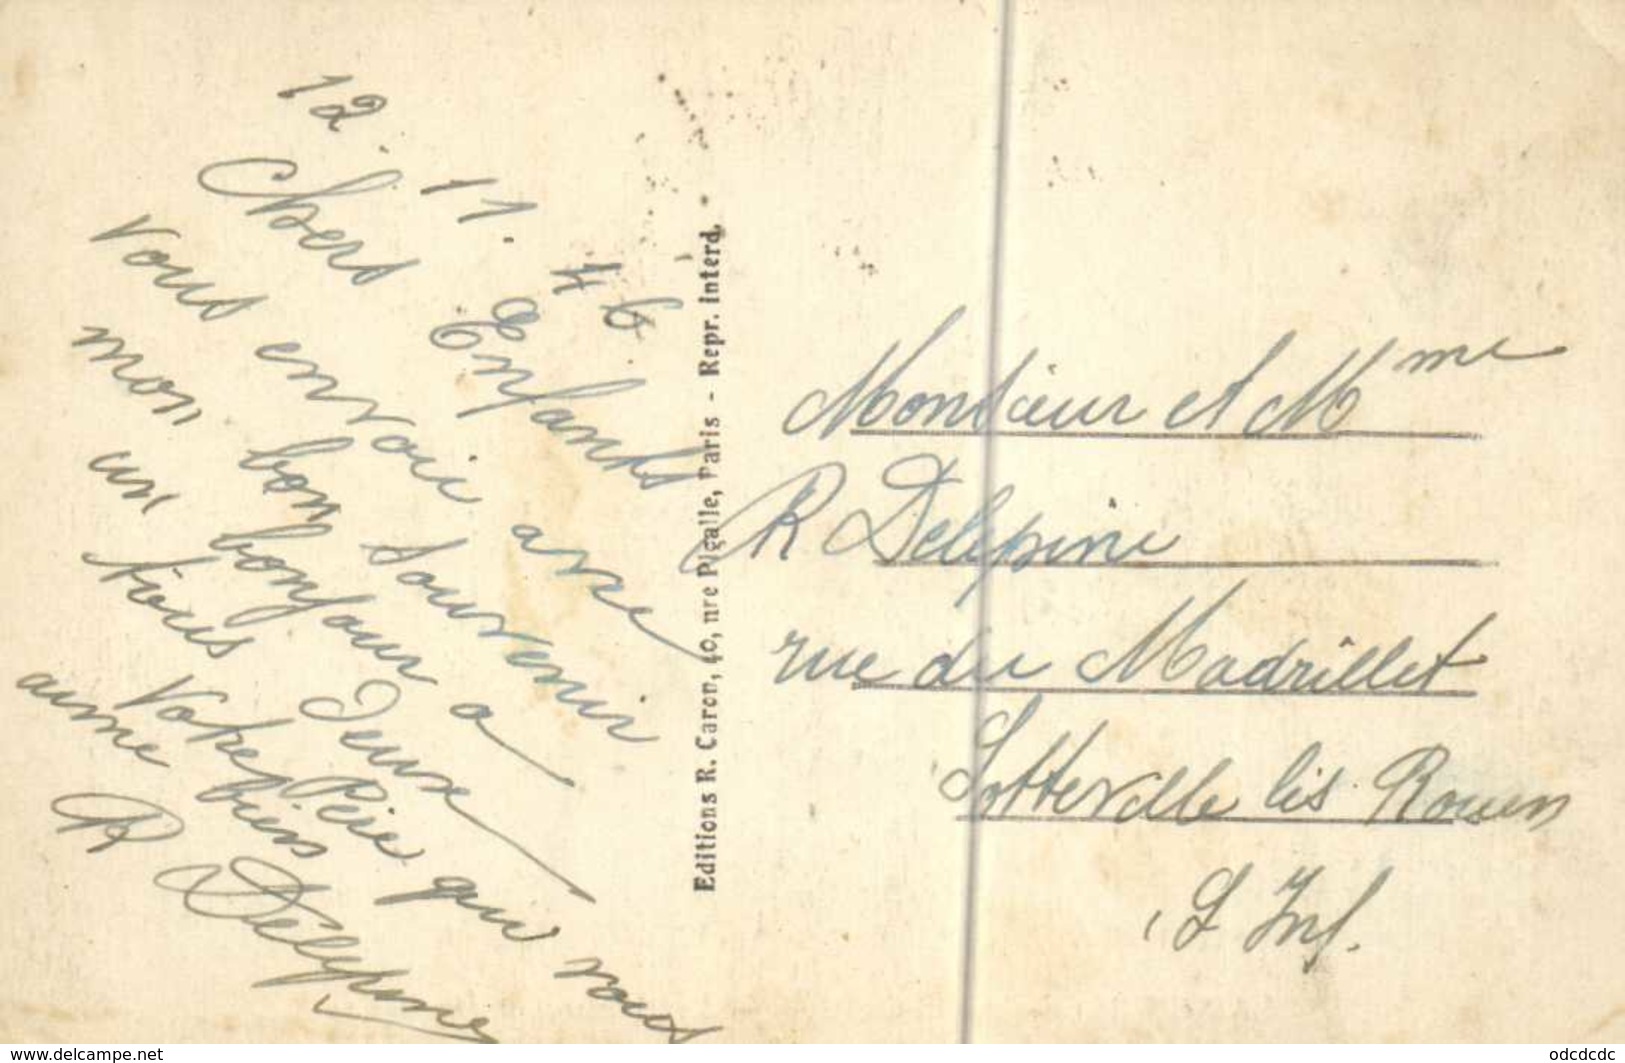 12.11.46
Chers Enfants
vous envoi avec
mon bon souvenir
un bonjour a
tous Deux
Votre Père qui vous
aime bien
R Delepine
Editions R. Caron, 40, rue Pigalle, Paris - Repr. interd.
Monsieur et Mme
R Delepine
rue du Madrillet
Sotteville lès Rouen
S Inf.
www.delcampe.net
odcdcdc